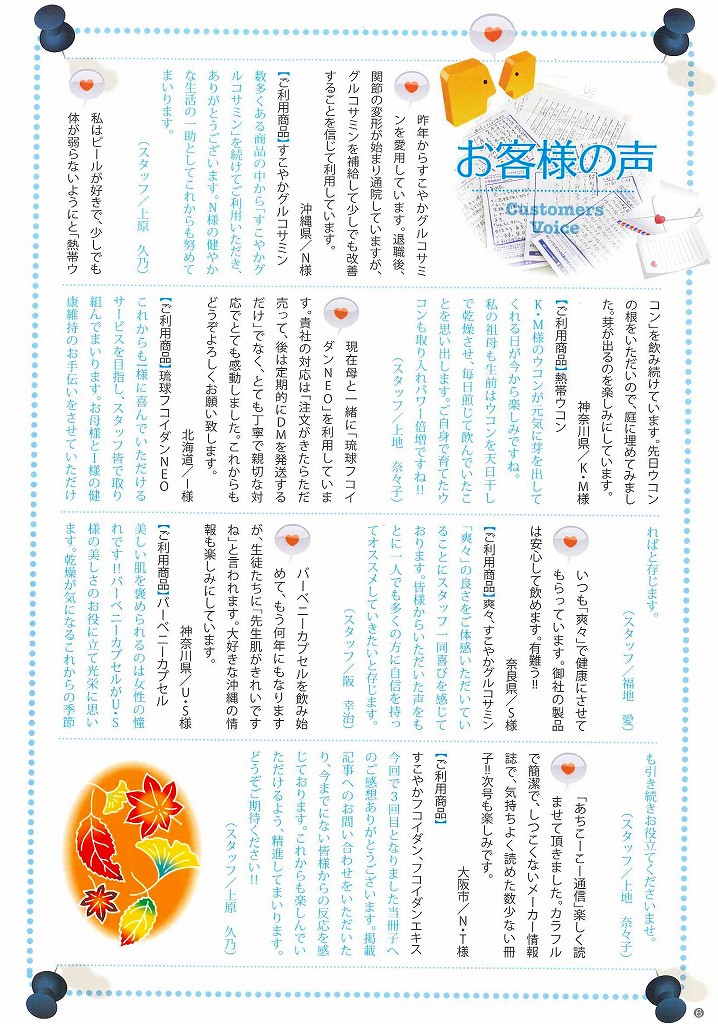 お客様の声
Customers
Voice
昨年からすこやかグルコサミ
ンを愛用しています。退職後、
関節の変形が始まり通院していますが、
グルコサミンを補給して少しでも改善
することを信じて利用しています。
沖縄県/N様
【ご利用商品】すこやかグルコサミン
数多くある商品の中から「すこやかグ
ルコサミン」を続けてご利用いただき、
ありがとうございます。N様の健やか
な生活の一助としてこれからも努めて
まいります。
(スタッフ/上原 久乃)
私はビールが好きで、少しでも
体が弱らないようにと「熱帯ウ
コン」を飲み続けています。先日ウコン
の根をいただいので、庭に埋めてみまし
た。芽が出るのを楽しみにしています。
神奈川県/K・M様
【ご利用商品】熱帯ウコン
K・M様のウコンが元気に芽を出して
くれる日が今から楽しみですね。
私の祖母も生前はウコンを天日干し
で乾燥させ、毎日煎じて飲んでいたこ
とを思い出します。ご自身で育てたウ
コンも取り入れパワー倍増ですね!!
(スタッフ/上地 奈々子)
現在母と一緒に「琉球フコイ
ダンNEO」を利用していま
す。貴社の対応は「注文がきたらただ
売って、後は定期的にDMを発送する
だけ」でなく、とても丁寧で親切な対
応でとても感動しました。これからも
どうぞよろしくお願い致します。
北海道/I様
【ご利用商品】琉球フコイダンNEO
これからもI様に喜んでいただける
サービスを目指し、スタッフ皆で取り
組んでまいります。お母様とI様の健
康維持のお手伝いをさせていただけ
ればと存じます。
(スタッフ/福地 愛)
いつも「爽々」で健康にさせて
もらっています。御社の製品
は安心して飲めます。有難う!!
奈良県/S様
【ご利用商品】爽々、すこやかグルコサミン
「爽々」の良さをご体感いただいてい
ることにスタッフ一同喜びを感じて
おります。皆様からいただいた声をも
とに一人でも多くの方に自信を持っ
てオススメしていきたいと存じます。
(スタッフ/阪 幸治)
バーベニーカプセルを飲み始
めて、もう何年にもなります
が、生徒たちに「先生肌がきれいです
ね」と言われます。大好きな沖縄の情
報も楽しみにしています。
神奈川県/U・S様
【ご利用商品】バーベニーカプセル
美しい肌を褒められるのは女性の憧
れです!!バーベニーカプセルがU・S
様の美しさのお役に立て光栄に思い
ます。乾燥が気になるこれからの季節
も引き続きお役立てくださいませ。
(スタッフ/上地 奈々子)
「あちこーこー通信」楽しく読
ませて頂きました。カラフル
で簡潔で、しつこくないメーカー情報
誌で、気持ちよく読めた数少ない冊
子!!次号も楽しみです。
大阪市/N・T様
【ご利用商品】
すこやかフコイダン、フコイダンエキス
今回で3回目となりました当冊子へ
のご感想ありがとうございます。掲載
記事へのお問い合わせをいただいた
り、今までにない皆様からの反応を感
じております。これからも楽しんでい
ただけるよう、精進してまいります。
どうぞご期待ください!!
(スタッフ/上原 久乃)
6